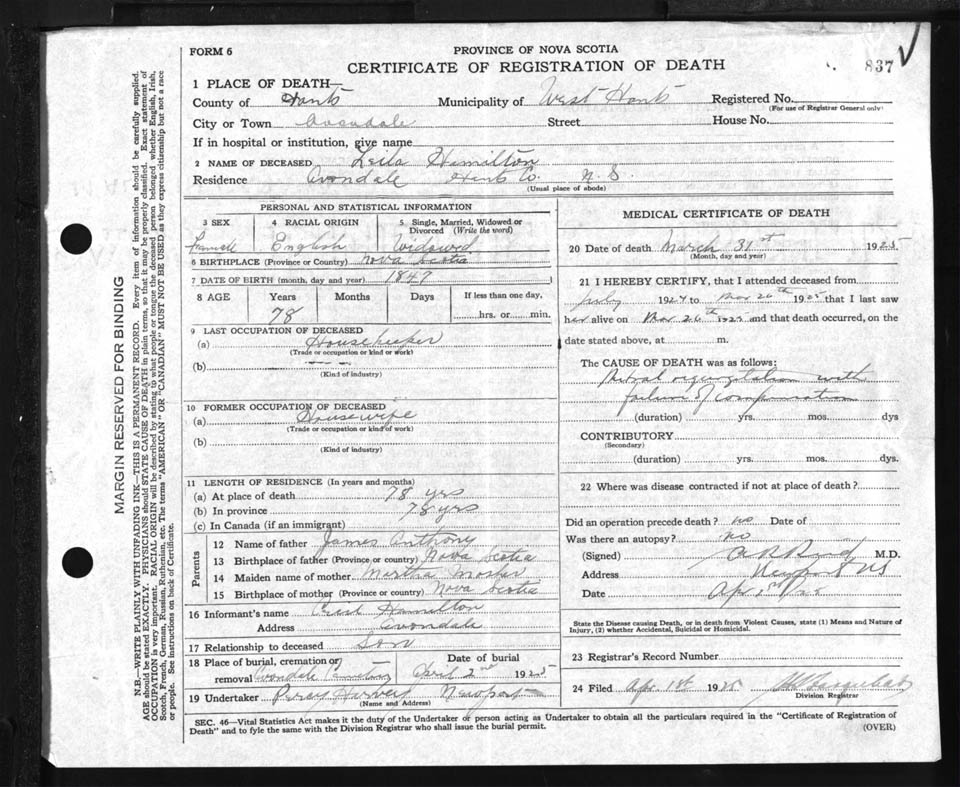 FORM 6
PROVINCE OF NOVA SCOTIA
CERTIFICATE OF REGISTRATION OF DEATH
837
1 PLACE OF DEATH—
County of Hants Municipality of West Hants Registered No.
(For use of Registrar General only)
City or Town Avondale Street House No.
If in hospital or institution, give name
2 NAME OF DECEASED Leila Hamilton
Residence Avondale Hants Co. N. S.
(Usual place of abode)
PERSONAL AND STATISTICAL INFORMATION
3 SEX 4 RACIAL ORIGIN 5 Single, Married, Widowed or Divorced (Write the word)
Female English Widowed
6 BIRTHPLACE (Province or Country) Nova Scotia
7 DATE OF BIRTH (month, day and year) 1847
8 AGE Years Months Days If less than one day,
78 hrs. or min.
9 LAST OCCUPATION OF DECEASED
(a) Housekeeper
(Trade or occupation or kind or work)
(b)
(Kind of industry)
10 FORMER OCCUPATION OF DECEASED
(a) Housewife
(Trade or occupation or kind of work)
(b)
(Kind of industry)
11 LENGTH OF RESIDENCE (In years and months)
(a) At place of death 78 yrs
(b) In province 78 yrs
(c) In Canada (if an immigrant)
Parents
12 Name of father James Anthony
13 Birthplace of father (Province or country) Nova Scotia
14 Maiden name of mother Martha Mosher
15 Birthplace of mother (Province or country) Nova Scotia
16 Informant's name Hamilton
Address Avondale
17 Relationship to deceased Son
18 Place of burial, cremation or removal Avondale Cemetery Date of burial April 2nd 1925
19 Undertaker Percy Harvey Newport
(Name and Address)
MEDICAL CERTIFICATE OF DEATH
20 Date of death March 31st 1925
(Month, day and year)
21 I HEREBY CERTIFY, that I attended deceased from
July 1924 to Mar 26th 1925 that I last saw
her alive on Mar 26th 1925 and that death occurred, on the
date stated above, at m.
The CAUSE OF DEATH was as follows:
Mitral regurgitation with
failure of compensation
(duration) yrs. mos. dys
CONTRIBUTORY
(Secondary)
(duration) yrs. mos. dys.
22 Where was disease contracted if not at place of death?
Did an operation precede death? no Date of
Was there an autopsy? no
(Signed) M.D.
Address Newport NS
Date Apr 2nd /25
State the Disease causing Death, or in death from Violent Causes, state (1) Means and Nature of
Injury, (2) whether Accidental, Suicidal or Homicidal.
23 Registrar's Record Number
24 Filed Apr 1st 1925
Division Registrar
SEC. 46—Vital Statistics Act makes it the duty of the Undertaker or person acting as Undertaker to obtain all the particulars required in the "Certificate of Registration of
Death" and to fyle the same with the Division Registrar who shall issue the burial permit.
(OVER)
MARGIN RESERVED FOR BINDING
N.B.—WRITE PLAINLY WITH UNFADING INK—THIS IS A PERMANENT RECORD. Every item of information should be carefully supplied.
AGE should be stated EXACTLY. PHYSICIANS should STATE CAUSE OF DEATH in plain terms, so that it may be properly classified. Exact statement of
OCCUPATION is very important. RACIAL ORIGIN will be described by stating to what people or tongue the deceased person belonged whether English, Irish,
Scotch, French, German, Russian, Ruthenian, etc. The terms "AMERICAN" OR "CANADIAN" MUST NOT BE USED as they express citizenship but not a race
or people. See instructions on back of Certificate.